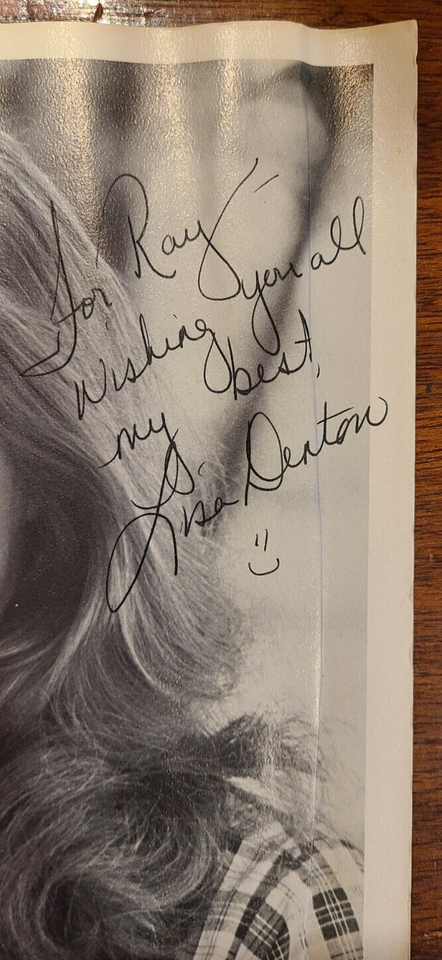 For Ray –
Wishing you all
my best,
Lisa Denton